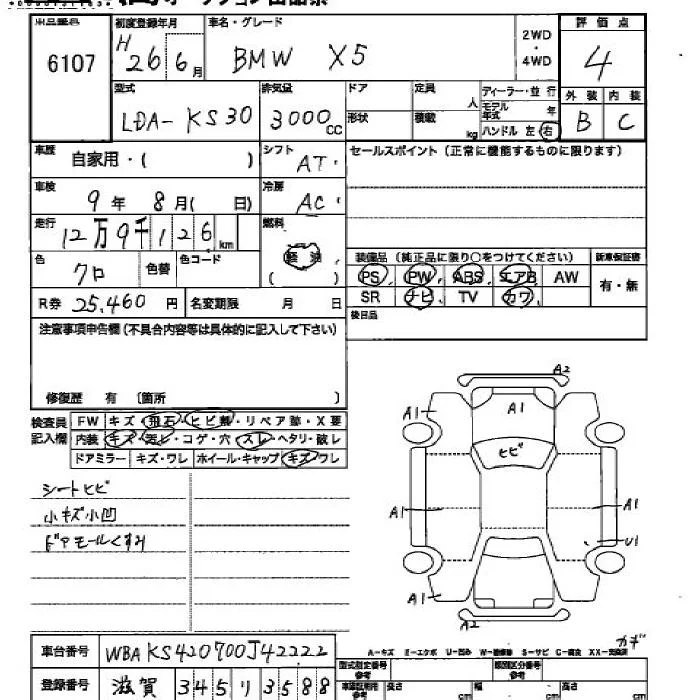 6107
初度登録年月
H 26 6 月
車名・グレード
BMW X5
2WD
・
4WD
評価点
4
型式
LDA-KS30
排気量
3000 CC
ドア
形状
定員
人
積載
kg
ディーラー・並行
モデル年式 年
ハンドル 左 右
外装 内装
B C
車歴
自家用・( )
シフト
AT・
セールスポイント (正常に機能するものに限ります)
車検
9 年 8 月 ( 日)
冷房
AC・
走行
12 万 9 千 1 2 6 km
燃料
軽油
( )
色
クロ
色替
色コード
装備品 (純正品に限り○をつけてください)
新車保証書
PS PW ABS エアB AW
有・無
SR ナビ TV カワ
R券 25,460 円
名変期限 月 日
後日品
注意事項申告欄(不具合内容等は具体的に記入して下さい)
修復歴 有 〔箇所 〕
検査員
記入欄
FW キズ・飛石・ヒビ割・リペア跡・X要
内装 キズ・・コゲ・穴 スレ・ヘタリ・破レ
ドアミラー キズ・ワレ ホイール・キャップ キズ・ワレ
シートヒビ
小キズ小凹
ドアモールくすみ
A2
A1 A1
ヒビ
A1 A1
U1
A1 A2
カギ
A-キズ E-エクボ U-凹み W-補修跡 S-サビ C-腐食 XX-交換済
車台番号 WBAKS420700J42222
登録番号 滋賀 345 り 3588
型式指定番号
参考
類別区分番号
参考
長さ cm 幅 cm 高さ cm